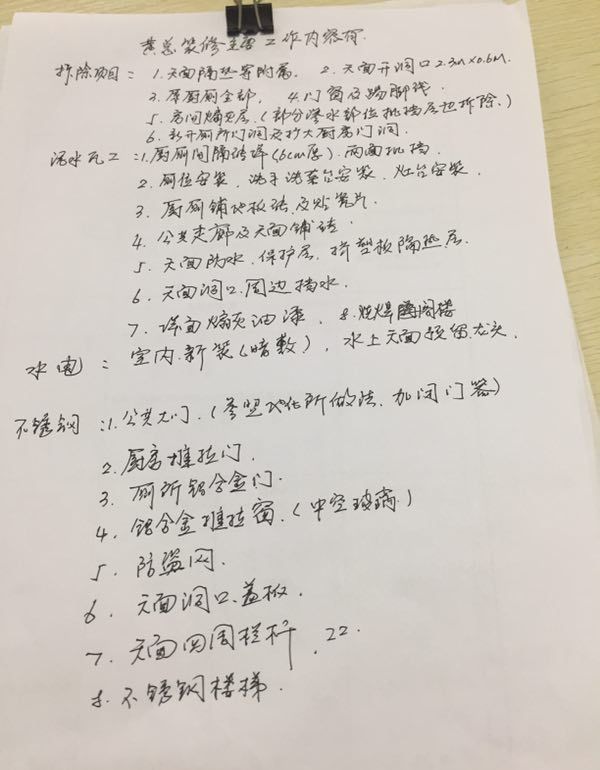 黄总装修主要工作内容有.
拆除项目: 1.天面隔热等附属. 2.天面开洞口2.3M×0.6M.
3.原厨厕全部. 4.门窗及踢脚线.
5.房间煽灰层.(部分渗水部位批挡层也拆除.)
6.新开厕所门洞及扩大厨房门洞.
泥水瓦工:1.厨厕间隔砖墙(6cm厚).两面批挡.
2.厕位安装.洗手洗菜台安装.灶台安装.
3.厨厕铺地板砖及贴瓷片.
4.公共走廊及天面铺砖.
5.天面防水.保护层.挤塑板隔热层.
6.天面洞口.周边挡水.
7.墙面煽灰油漆. 8.烧焊阁楼
水电: 室内新装(暗敷),水上天面预留龙头.
不锈钢:1.公共大门.(参照地住所做法.加闭门器)
2.厨房推拉门.
3.厕所铝合金门.
4.铝合金推拉窗.(中空玻璃.)
5.防盗网.
6.天面洞口.盖板.
7.天面四周栏杆. 22.
8.不锈钢楼梯.